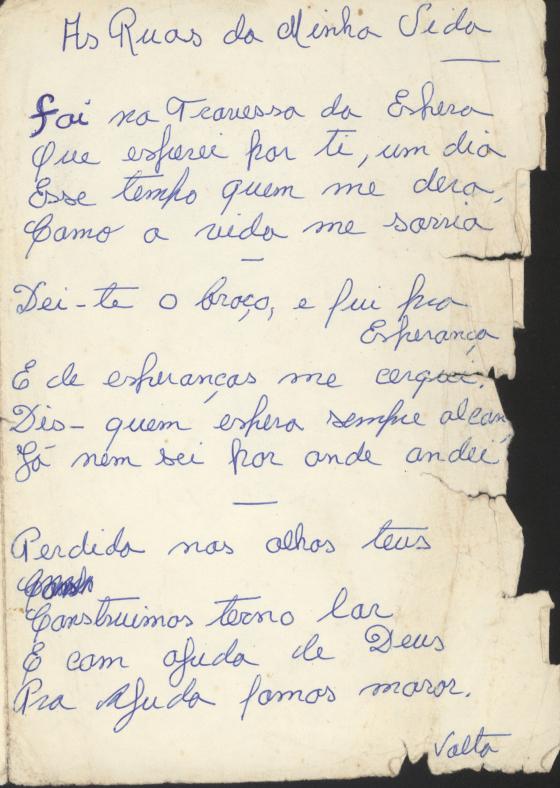 As Ruas da Minha Vida
Foi na Travessa da Espera
Que esperei por ti, um dia
Esse tempo quem me dera,
Como a vida me sorria
Dei-te o braço, e fui pra
Esperança
E de esperanças me cerquei.
Dis- quem espera sempre alcan
Já nem sei por onde andei
Perdida nos olhos teus
Construimos terno lar
E com ajuda de Deus
Pra Ajuda fomos morar.
Volta